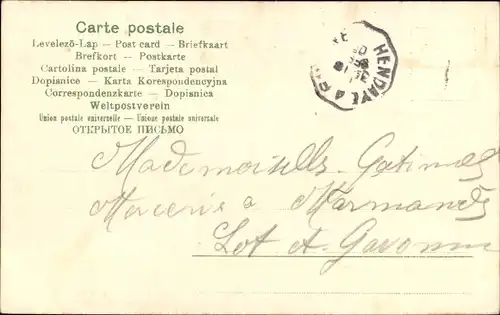 Carte postale
Levelező-Lap — Post card — Briefkaart
Brefkort — Postkarte
Cartolina postale — Tarjeta postal
Dopisnice — Karta Korespondencyjna
Correspondenzkarte — Dopisnica
Weltpostverein
Union postale universelle — Unione postale universale
ОТКРЫТОЕ ПИСЬМО
HENDAYE A
Mademoiselle
à Marmande
Lot et Garonne